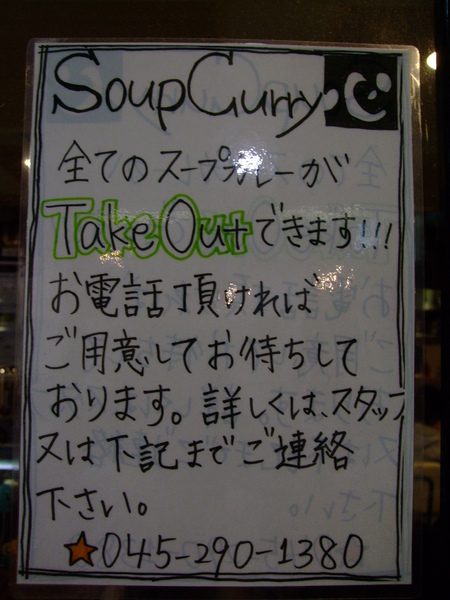 Soup Curry
全てのスープカレーが
Take Outできます!!!
お電話頂ければ
ご用意してお待ちして
おります。詳しくは、スタッフ
又は下記までご連絡
下さい。
★045-290-1380